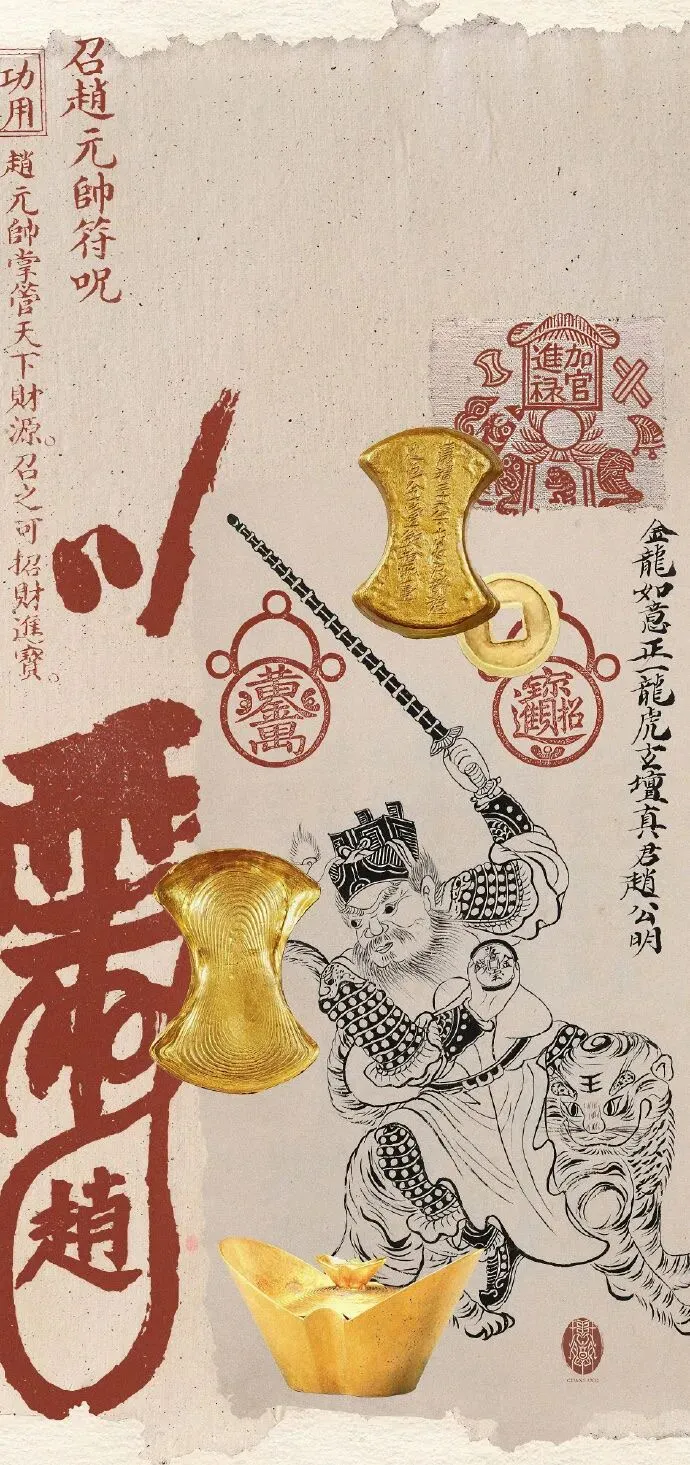 召趙元帥符呪
功用
趙元帥掌管天下財源。召之可招財進寶。
加官
進禄
黃金萬
招財進寶
金龍如意正一龍虎玄壇真君趙公明
王
趙